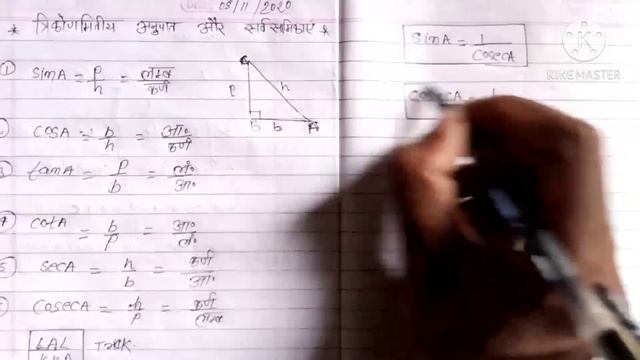 03/11/2020
* त्रिकोणमितीय अनुपात और सर्वसमिकाएं *
① sinA = p/h = लम्ब/कर्ण
cosA = b/h = आ०/कर्ण
3 tanA = p/b = लं०/आ०
4 cotA = b/p = आ०/लं०
5 secA = h/b = कर्ण/आ०
cosecA = h/p = कर्ण/लम्ब
LAL Trick
KKA
p h
B b A
sinA = 1/cosecA
KINEMASTER